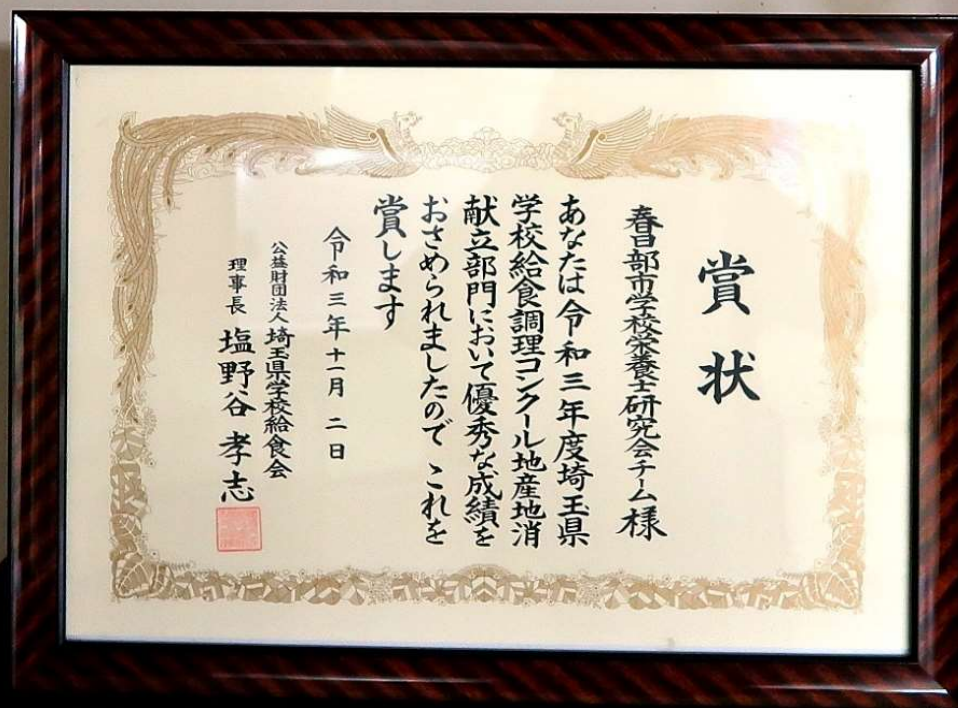 賞状
春日部市学校栄養士研究会チーム様
あなたは令和三年度埼玉県
学校給食調理コンクール地産地消
献立部門において優秀な成績を
おさめられましたので これを
賞します
令和三年十一月二日
公益財団法人 埼玉県学校給食会
理事長 塩野谷孝志